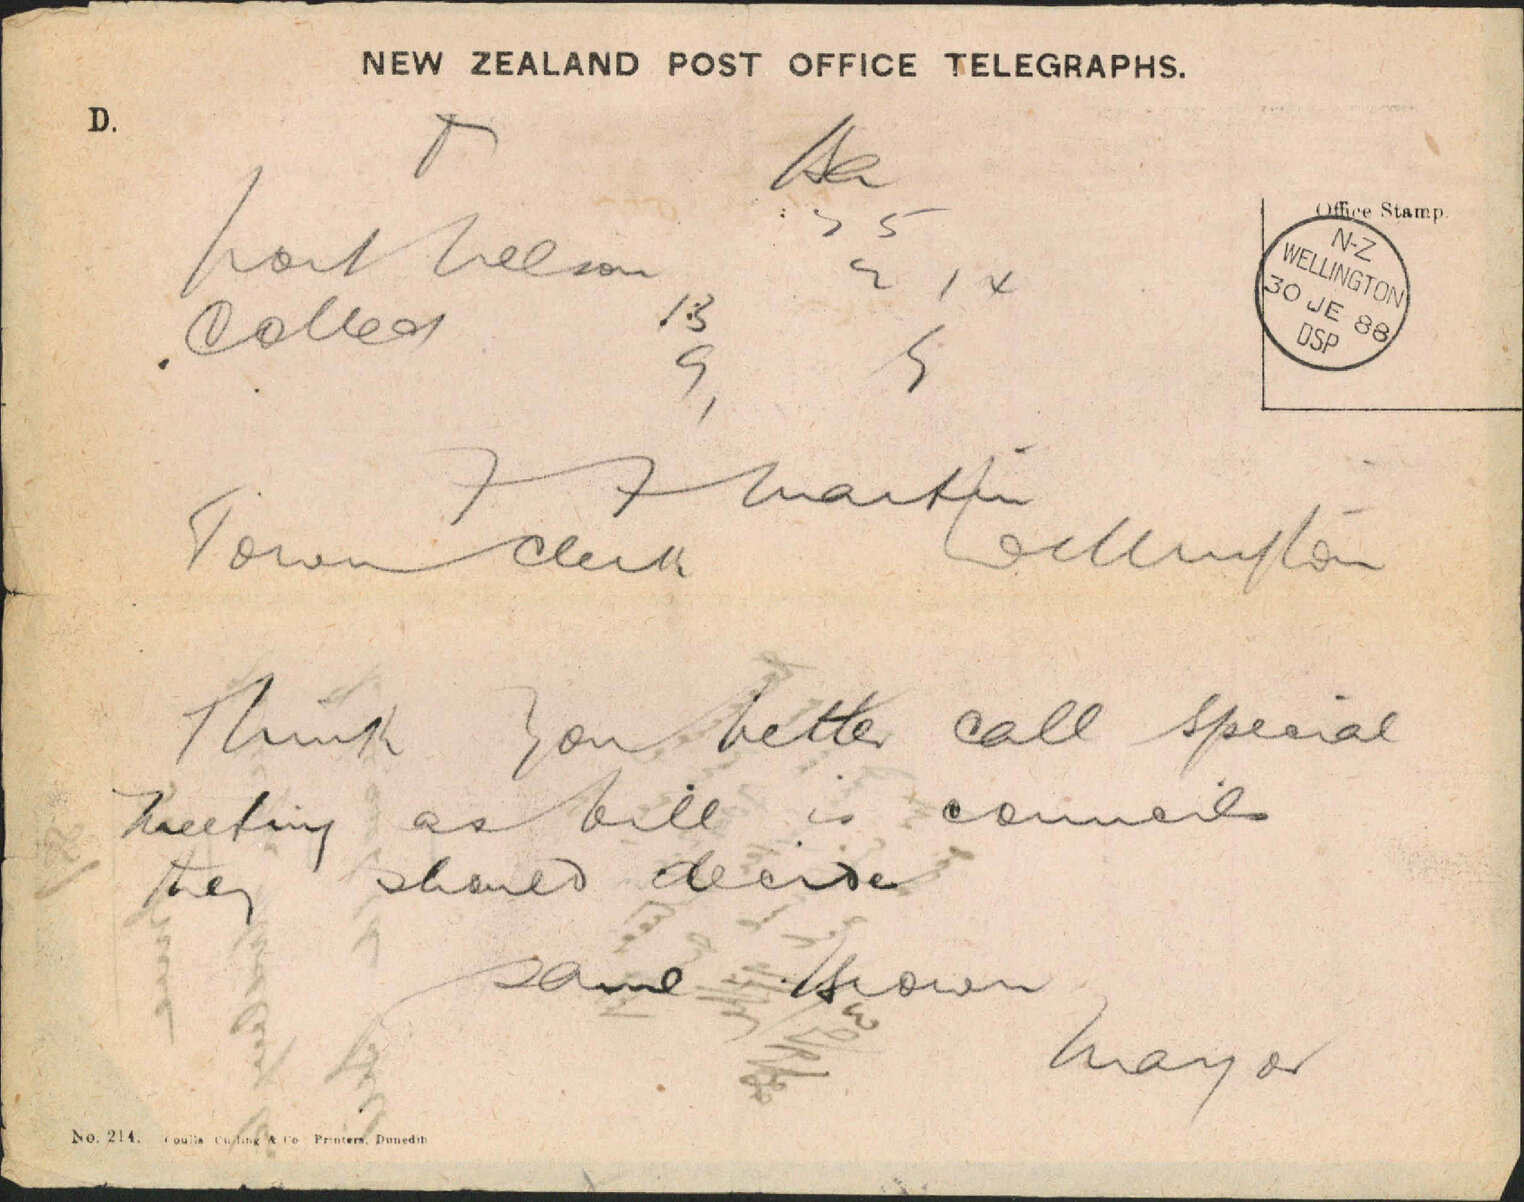 NEW ZEALAND POST OFFICE TELEGRAPHS.
D.
Office Stamp.
N-Z
WELLINGTON
30 JE 88
DSP
7 5
Port Nelson
2 14
Collect
13
9
5
F F Martin
Town Clerk Wellington
Think you better call special
meeting as bill is councils
they should decide
Saml Brown
Mayor
No. 214. Coulls Culling & Co Printers, Dunedin